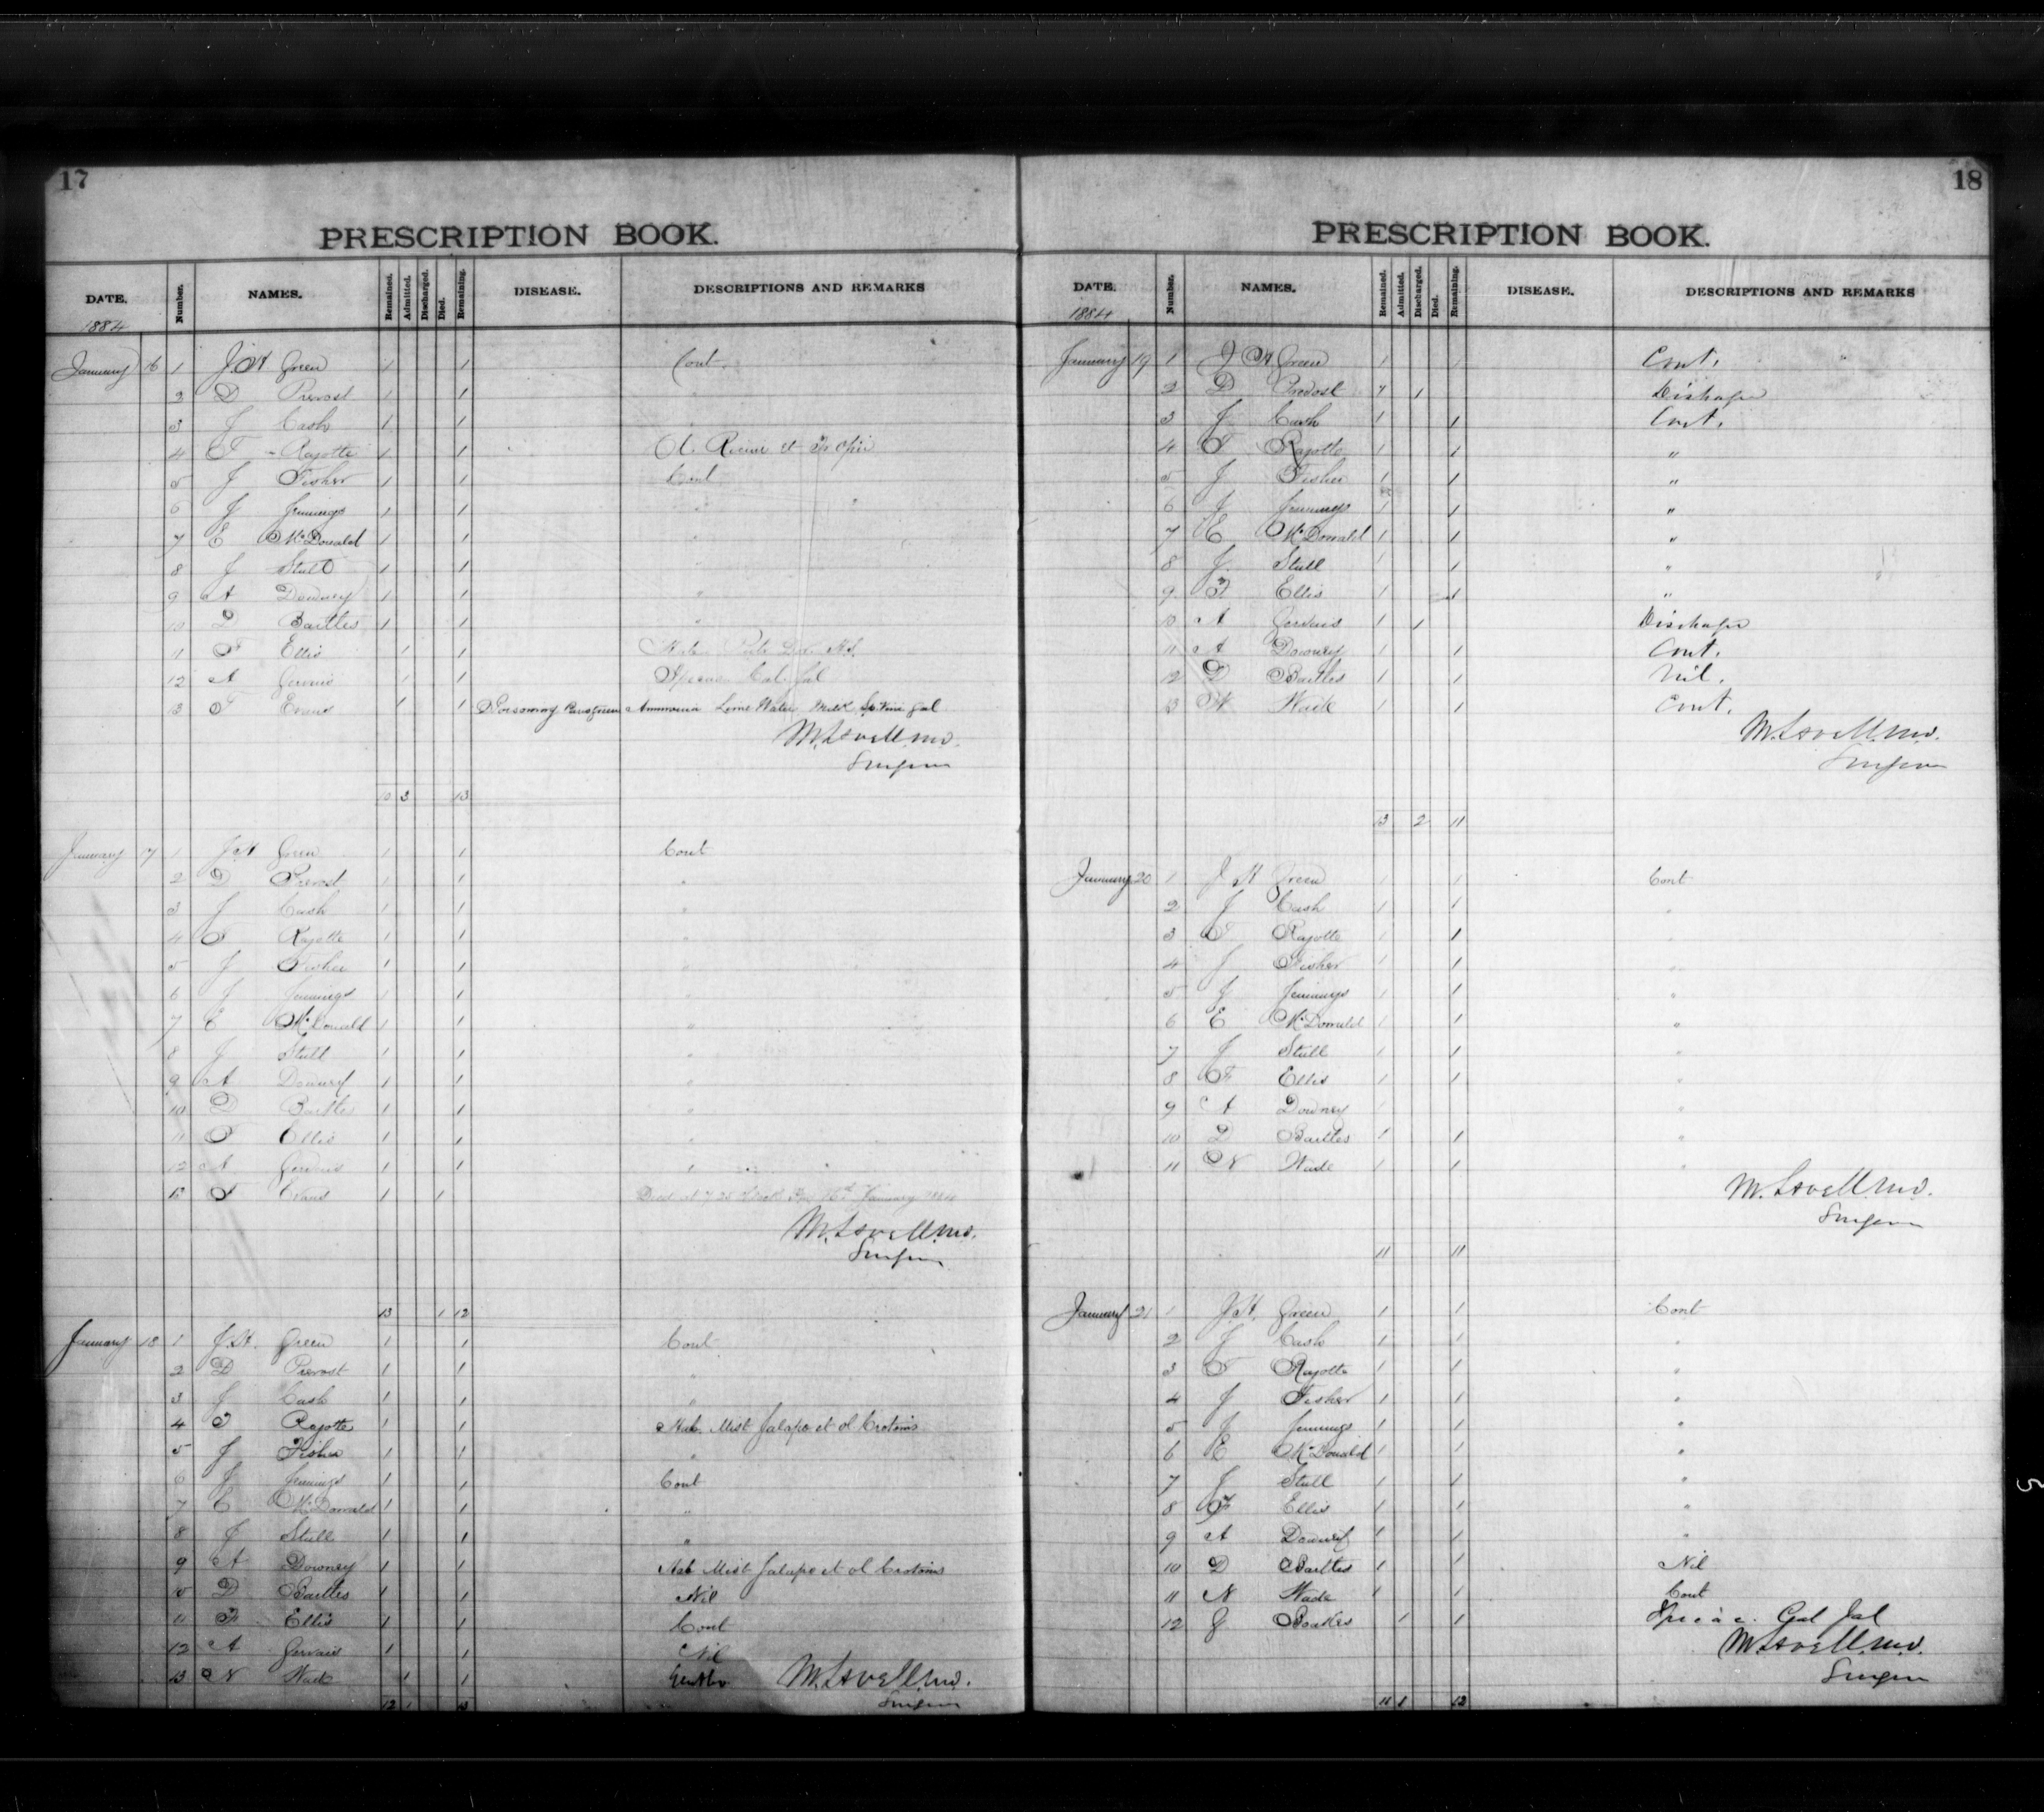 17
PRESCRIPTION BOOK.
DATE. Number. NAMES. Remained. Admitted. Discharged. Died. Remaining. DISEASE. DESCRIPTIONS AND REMARKS
1884
January 16 1 J. H Green 1 1 Cont.
2 D Prevost 1 1 "
3 J Cash 1 1 "
4 F Rajotte 1 1 Ol. Ricini et Tr Opii
5 J Fisher 1 1 Cont
6 J Jennings 1 1 " "
7 E McDonald 1 1 "
8 J Stull 1 1 "
9 A Downey 1 1 "
10 D Bartles 1 1 "
11 F Ellis 1 1
12 A Gervais 1 1 Cal. Jal
13 F Evans 1 1 Poisoning Paris green Ammonia Lime Water Milk Sp. Vini gal
M. Lavell. M.D.
Surgeon
10 3 13
January 17 1 J. H Green 1 1 Cont
2 D Prevost 1 1 "
3 J Cash 1 1 "
4 F Rajotte 1 1 "
5 J Fisher 1 1 "
6 J Jennings 1 1 "
7 E McDonald 1 1 "
8 J Stull 1 1 "
9 A Downey 1 1 "
10 D Bartles 1 1 "
11 F Ellis 1 1 "
12 A Gervais 1 1 "
13 F Evans 1 1 Died at 7.25 16th January 1884
M. Lavell. M.D.
Surgeon
13 1 12
January 18 1 J. H. Green 1 1 Cont
2 D Prevost 1 1 "
3 J Cash 1 1 "
4 F Rajotte 1 1 Hab. Mist Jalapo et ol Crotonis
5 J Fisher 1 1 "
6 J Jennings 1 1 Cont
7 E McDonald 1 1 "
8 J Stull 1 1 "
9 A Downey 1 1 Hab Mist Jalapo et ol Crotonis
10 D Bartles 1 1 Nil
11 F Ellis 1 1 Cont
12 A Gervais 1 1 Nil
13 N Wade 1 1 M. Lavell. M.D.
12 1 13 Surgeon
18
PRESCRIPTION BOOK.
DATE. Number. NAMES. Remained. Admitted. Discharged. Died. Remaining. DISEASE. DESCRIPTIONS AND REMARKS
1884
January 19 1 J H Green 1 1 Cont.
2 D Prevost 1 1 Discharge
3 J Cash 1 1 Cont.
4 F Rajotte 1 1 "
5 J Fisher 1 1 "
6 J Jennings 1 1 "
7 E McDonald 1 1 "
8 J. Stull 1 1 "
9 F Ellis 1 1 "
10 A Gervais 1 1 Discharge
11 A Downey 1 1 Cont.
12 D Bartles 1 1 Nil.
13 N Wade 1 1 Cont.
M. Lavell. M.D.
Surgeon
13 2 11
January 20 1 J H Green 1 1 Cont
2 J Cash 1 1 "
3 F Rajotte 1 1 "
4 J Fisher 1 1 "
5 J Jennings 1 1 "
6 E McDonald 1 1 "
7 J Stull 1 1 "
8 F Ellis 1 1 "
9 A Downey 1 1 "
10 D Bartles 1 1 "
11 N Wade 1 1 "
M. Lavell. M.D.
Surgeon
11 11
January 21 1 J. H. Green 1 1 Cont
2 J Cash 1 1 "
3 F Rajotte 1 1 "
4 J Fisher 1 1 "
5 J Jennings 1 1 "
6 E McDonald 1 1 "
7 J Stull 1 1 "
8 F Ellis 1 1 "
9 A Downey 1 1 "
10 D Bartles 1 1 Nil
11 N Wade 1 1 Cont
12 J Boakes 1 1 Cal Jal
M. Lavell. M.D.
Surgeon
11 1 12